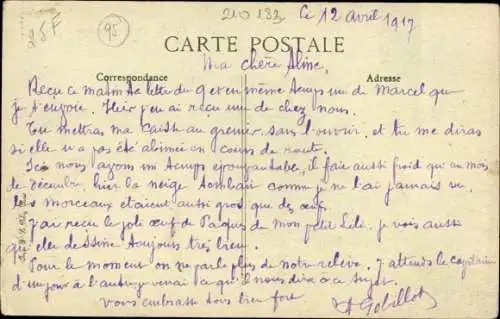 210 183
25F
95
Ce 12 avril 1917
CARTE POSTALE
Ma chère Aline,
Correspondance
Adresse
Reçu ce matin ta lettre du 9 et en même temps une de Marcel que
je t'envoie. Hier j'en ai reçu une de chez nous.
Tu mettras ma caisse au grenier sans l'ouvrir, et tu me diras
si elle n'a pas été abimée en cours de route.
Ici nous avons un temps épouvantable, il fait aussi froid qu'au mois
de décembre, hier la neige tombait comme je ne l'ai jamais vu,
les morceaux étaient aussi gros que des œufs.
J'ai reçu le joli œuf de Pâques de mon petit Lulu. je vois aussi
qu'elle dessine toujours très bien.
Pour le moment on ne parle plus de notre relève. J'attends le capitaine
d'un jour à l'autre, je verrai ce qu'il nous dira à ce sujet.
Vous embrasse tous bien fort
Gobillot